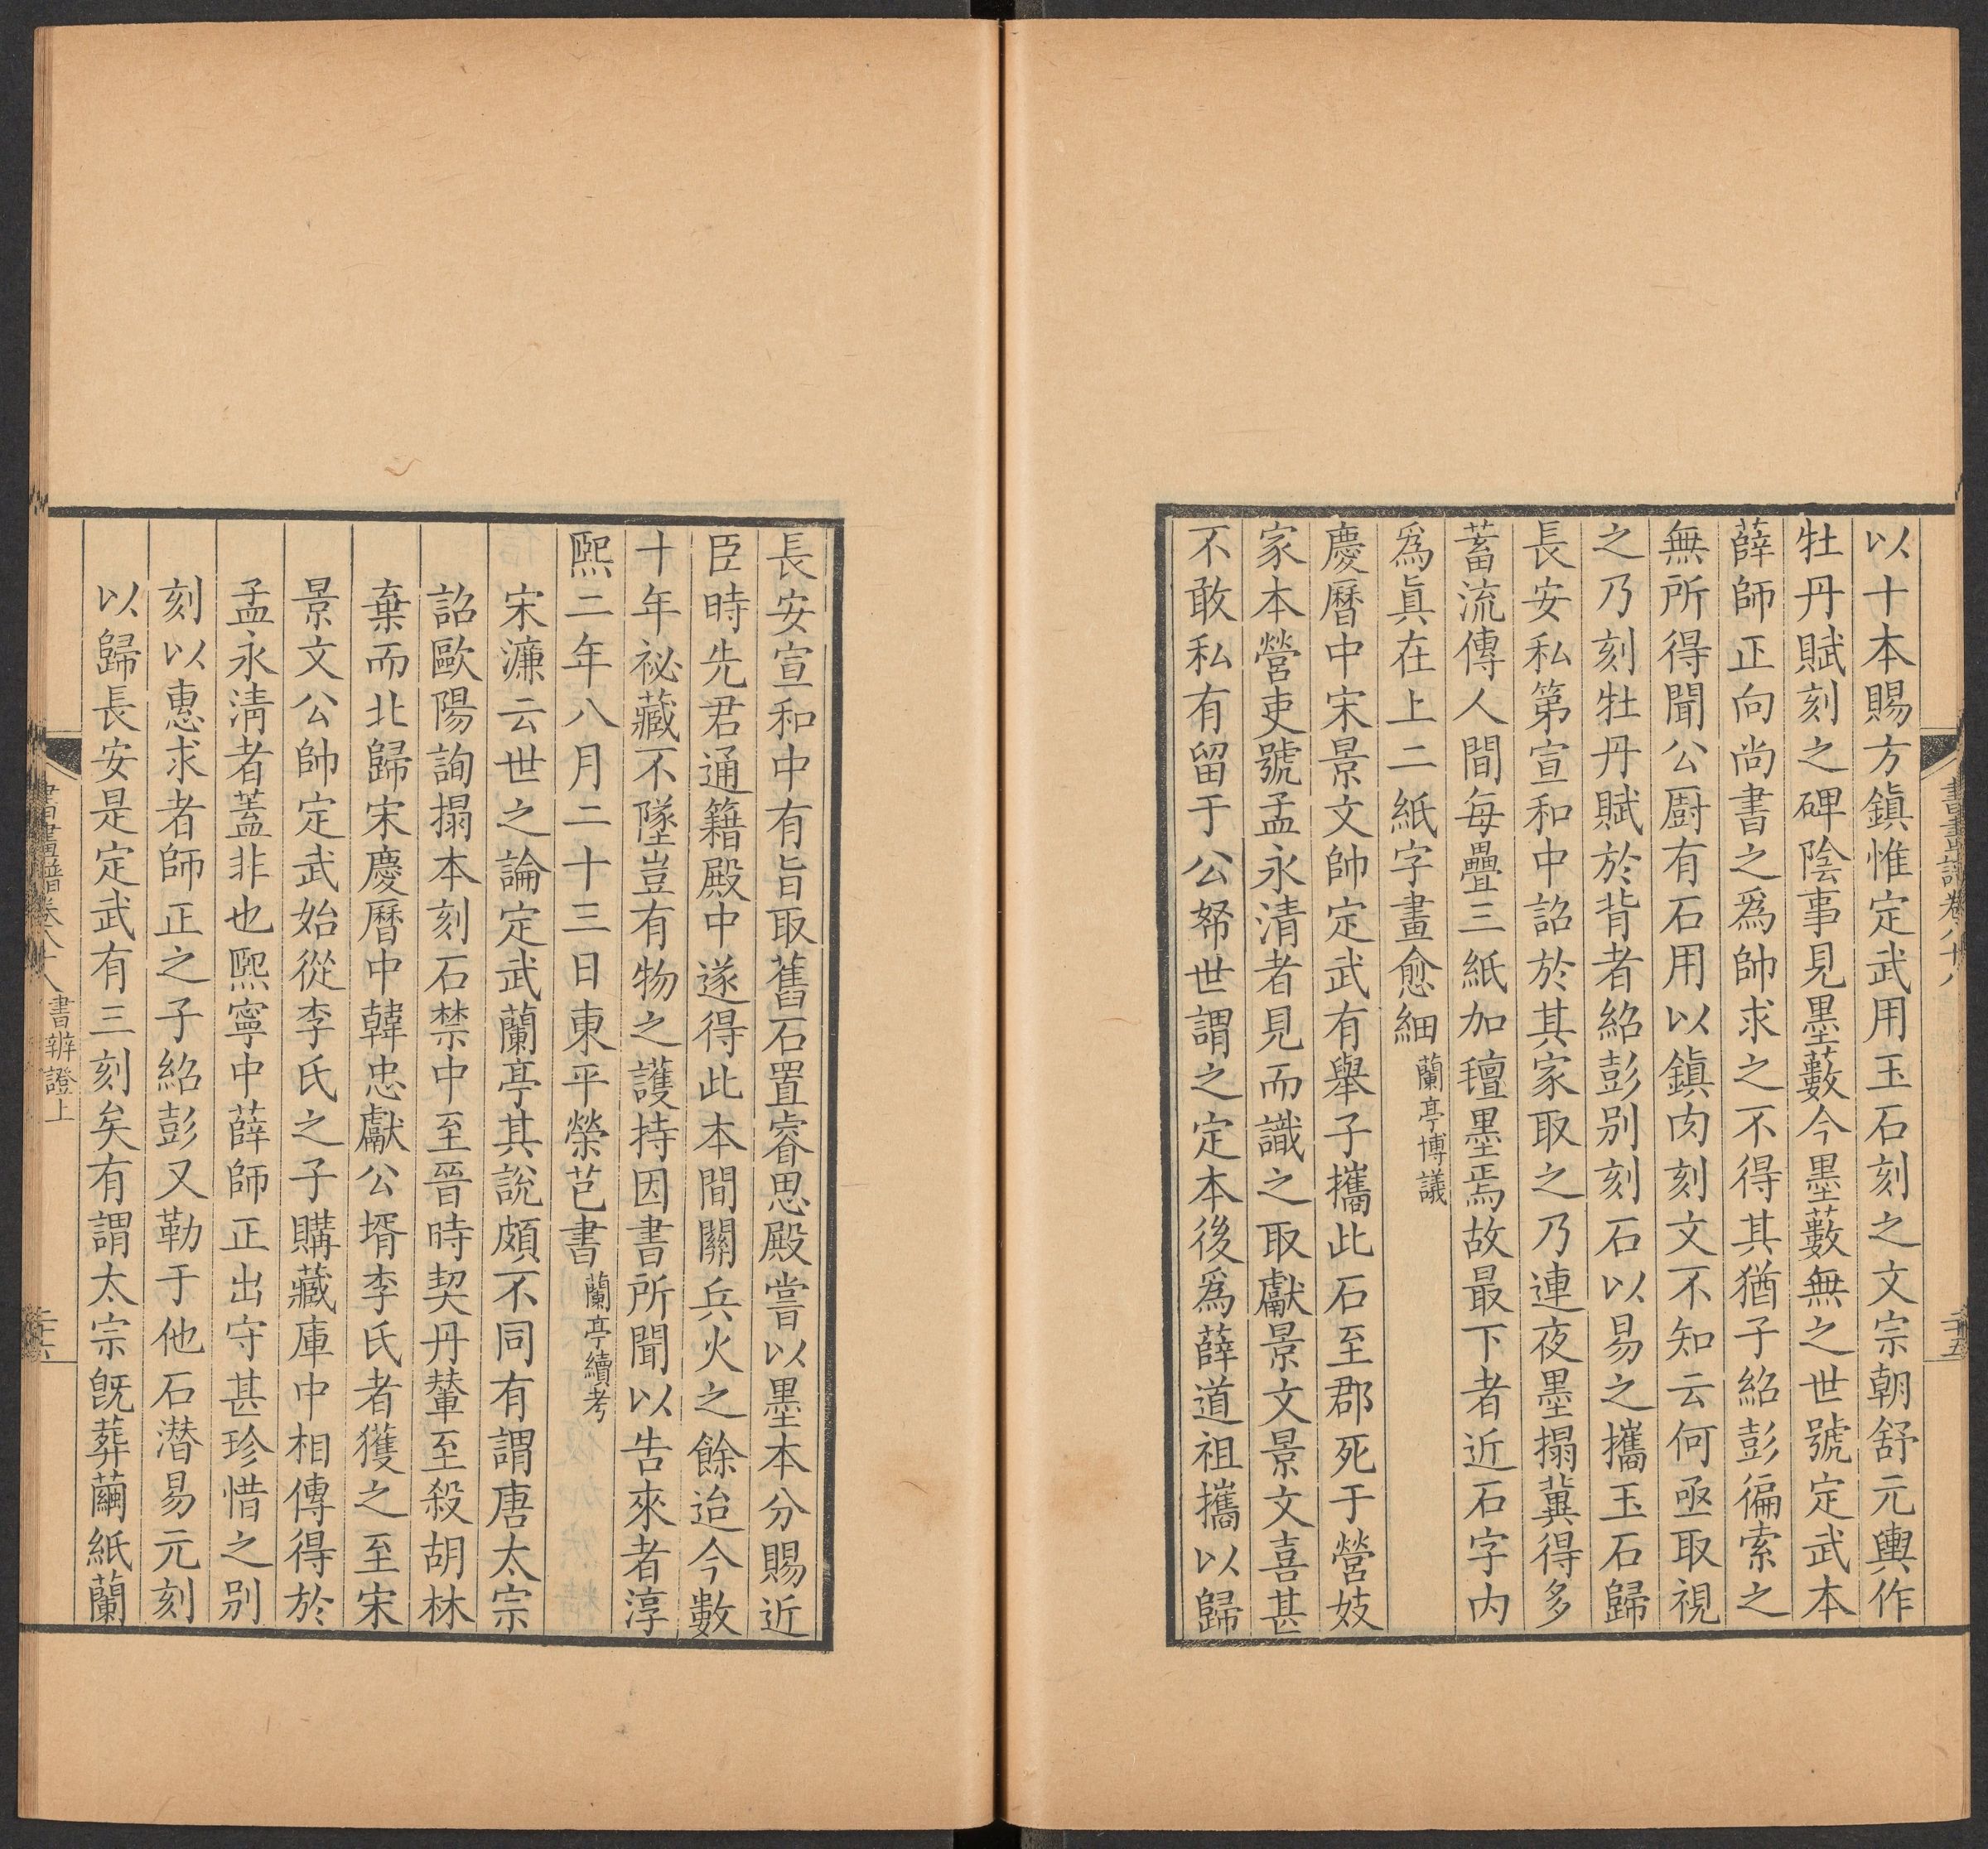 以十本賜方鎮惟定武用玉石刻之文宗朝舒元輿作
牡丹賦刻之碑陰事見墨藪今墨藪無之世號定武本
薛師正向尚書之爲帥求之不得其猶子紹彭徧索之
無所得聞公厨有石用以鎮肉刻文不知云何亟取視
之乃刻牡丹賦於背者紹彭别刻石以易之攜玉石歸
長安私第宣和中詔於其家取之乃連夜墨搨冀得多
蓄流傳人間每疊三紙加氊墨焉故最下者近石字内
爲眞在上二紙字畫愈細蘭亭博議
慶曆中宋景文帥定武有舉子攜此石至郡死于營妓
家本營吏號孟永清者見而識之取獻景文景文喜甚
不敢私有留于公帑世謂之定本後爲薛道祖攜以歸
書畫譜卷八十八
二十五
長安宣和中有旨取舊石置睿思殿嘗以墨本分賜近
臣時先君通籍殿中遂得此本間關兵火之餘迨今數
十年祕藏不墜豈有物之護持因書所聞以告來者淳
熙二年八月二十三日東平榮芑書蘭亭續考
宋濂云世之論定武蘭亭其說頗不同有謂唐太宗
詔歐陽詢搨本刻石禁中至晉時契丹輦至殺胡林
棄而北歸宋慶曆中韓忠獻公壻李氏者獲之至宋
景文公帥定武始從李氏之子購藏庫中相傳得於
孟永淸者蓋非也熙寧中薛師正出守甚珍惜之别
刻以惠求者師正之子紹彭又勒于他石潛易元刻
以歸長安是定武有三刻矣有謂太宗旣葬繭紙蘭
書畫譜卷八十八
書辨證上
二十六